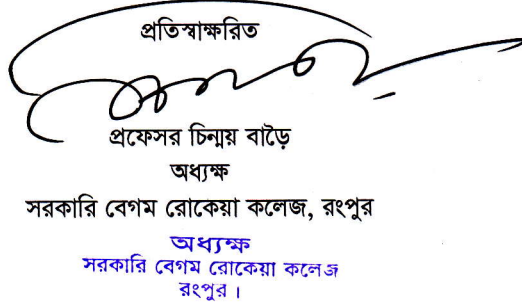 প্রতিস্বাক্ষরিত
প্রফেসর চিন্ময় বাড়ৈ
অধ্যক্ষ
সরকারি বেগম রোকেয়া কলেজ, রংপুর
অধ্যক্ষ
সরকারি বেগম রোকেয়া কলেজ
রংপুর।